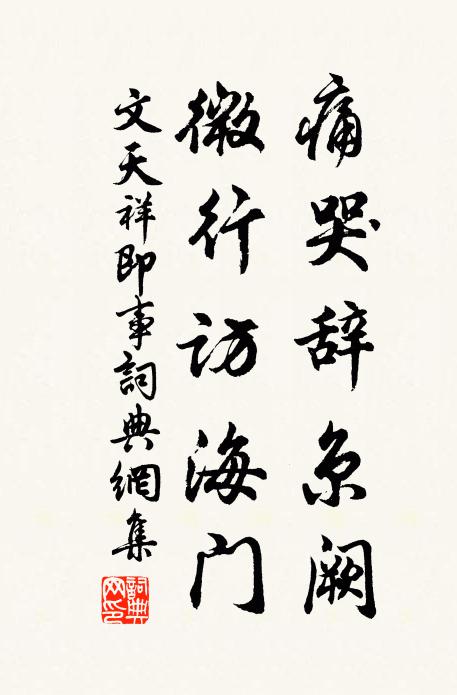 痛哭辞京阙
微行访海门
文天祥即事詞典網集
詞典網印